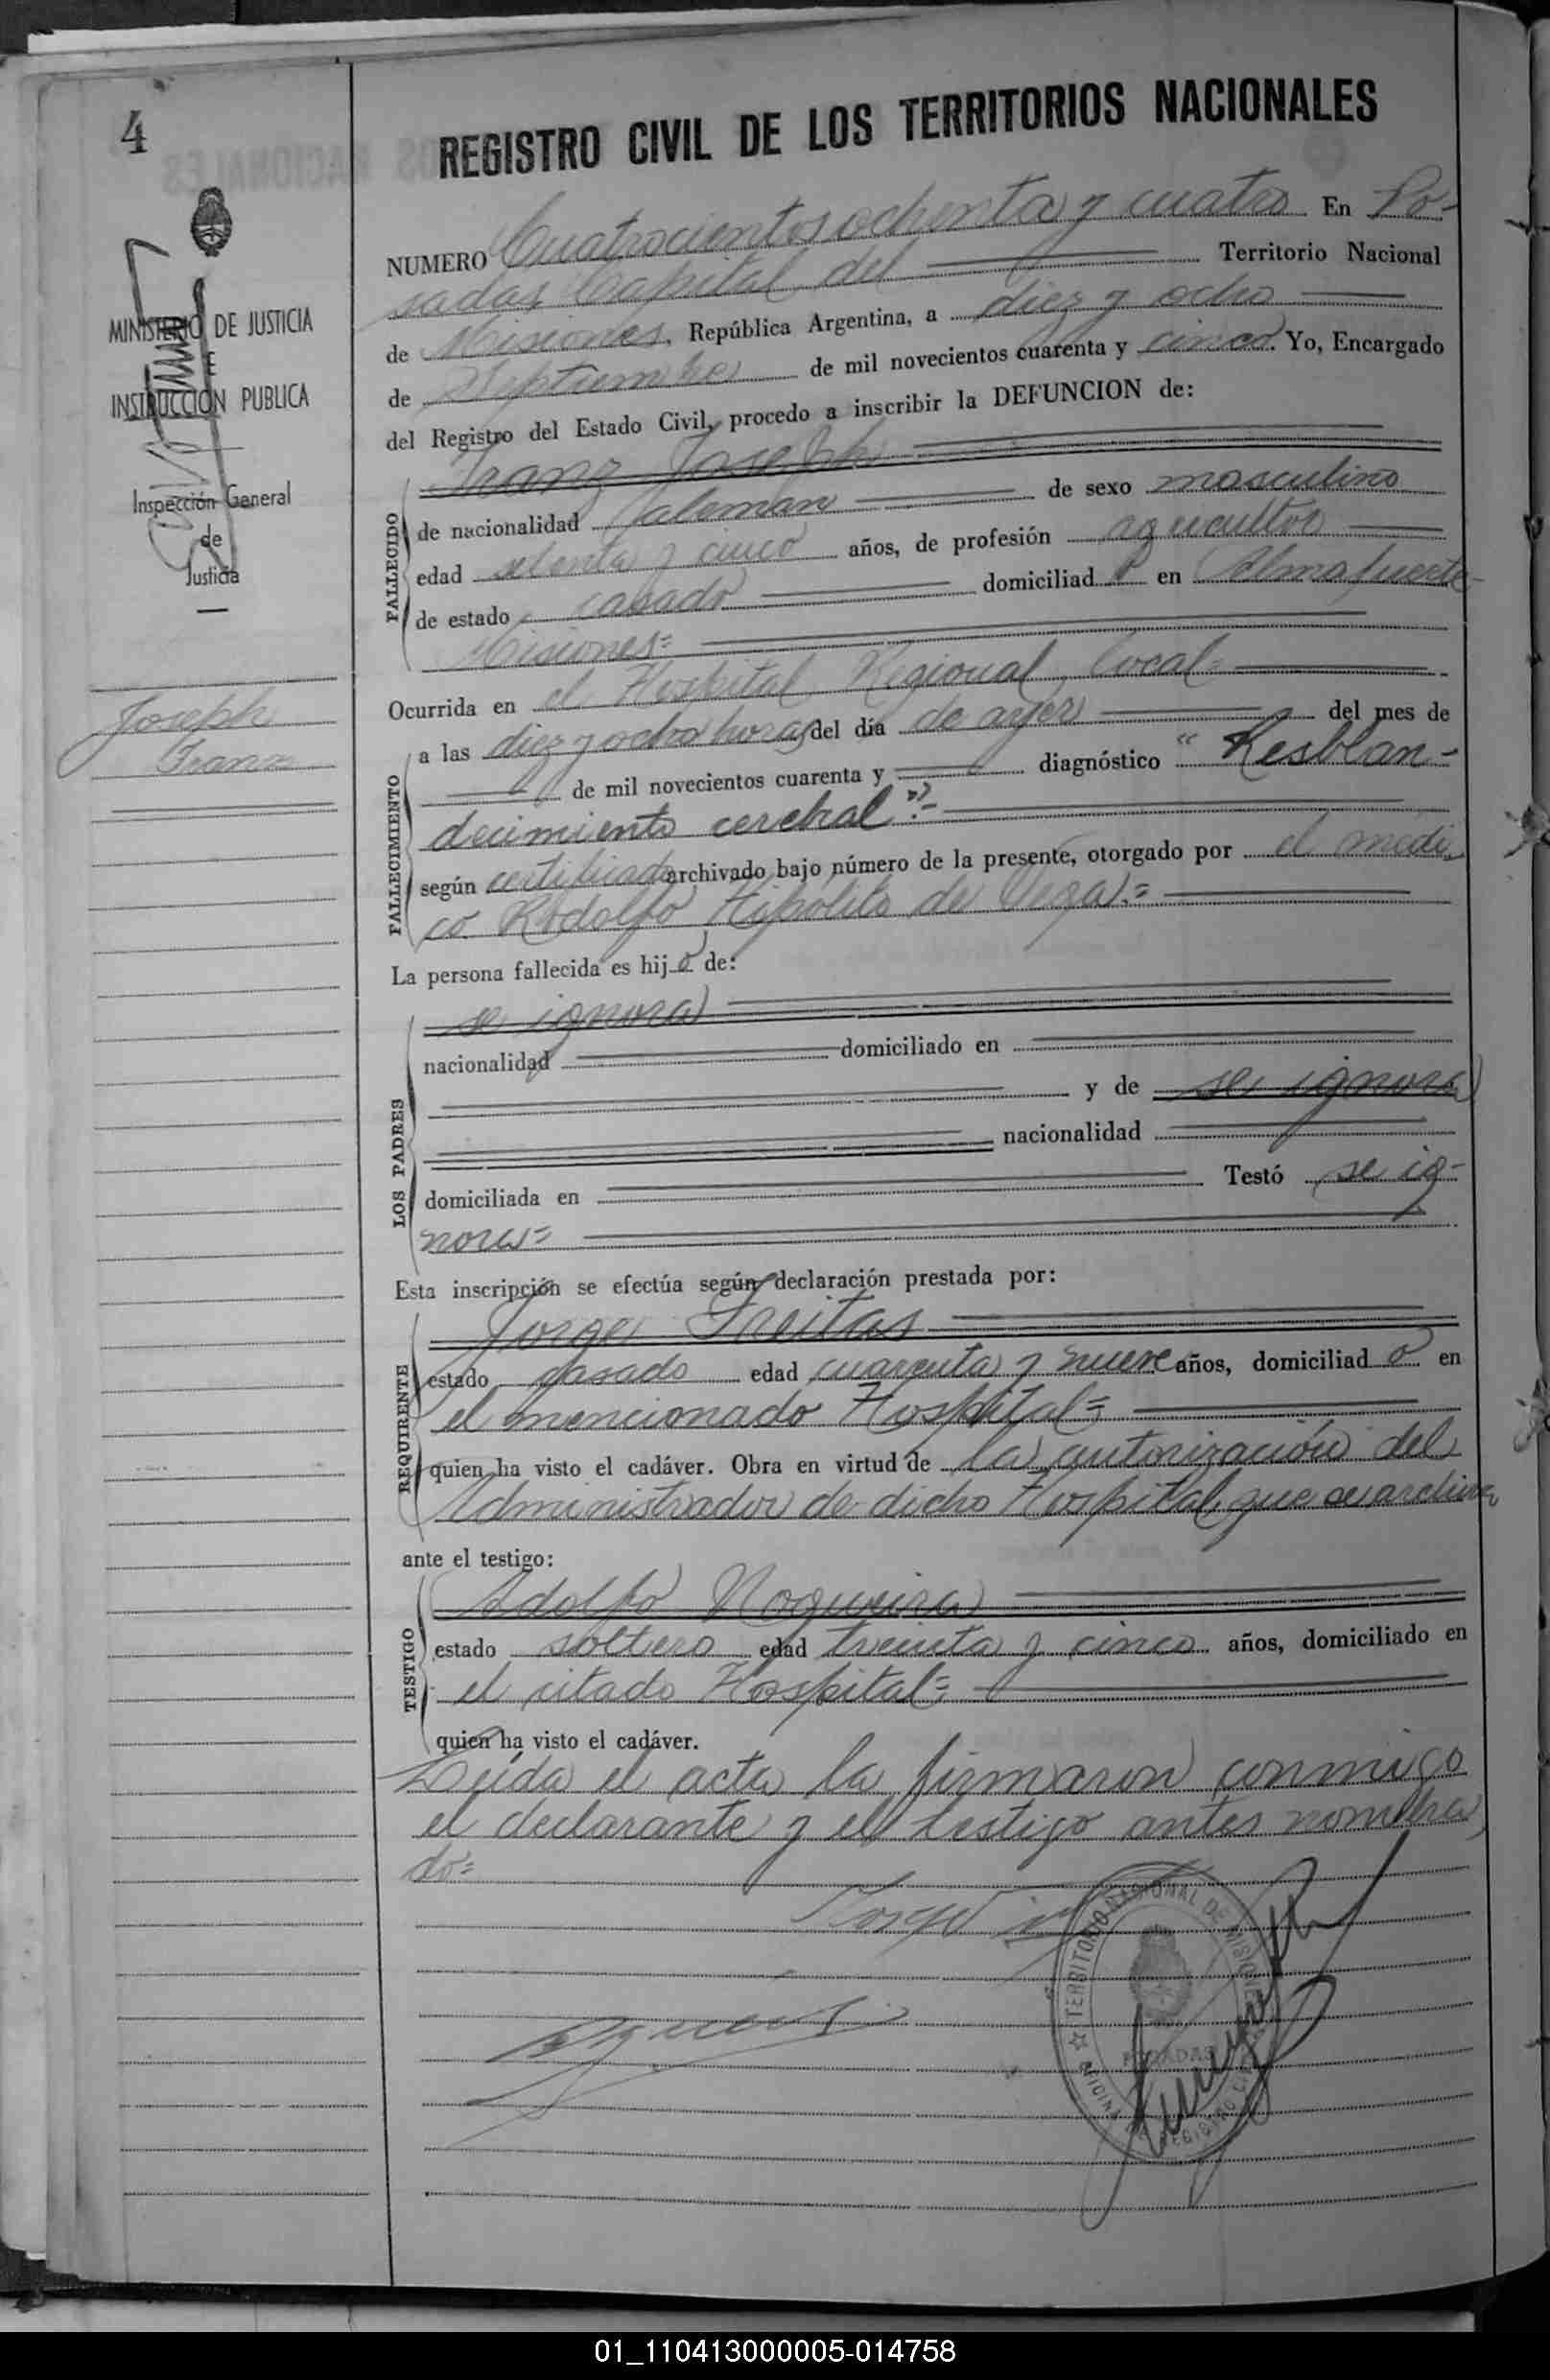 4
REGISTRO CIVIL DE LOS TERRITORIOS NACIONALES
MINISTERIO DE JUSTICIA
E
INSTRUCCION PUBLICA
Inspección General
de
Justicia
Joseph
Franz
NUMERO Cuatrocientos ochenta y cuatro En Po-
sadas Capital del Territorio Nacional
de Misiones, República Argentina, a diez y ocho
de Septiembre de mil novecientos cuarenta y cinco. Yo, Encargado
del Registro del Estado Civil, procedo a inscribir la DEFUNCION de:
Franz Joseph
FALLECIDO
de nacionalidad aleman de sexo masculino
edad setenta y cinco años, de profesión agricultor
de estado casado domiciliado en Almafuerte-
Misiones=
Ocurrida en el Hospital Regional local=
FALLECIMIENTO
a las diez y ocho horas del día de ayer del mes de
de mil novecientos cuarenta y diagnóstico "Resblan-
decimiento cerebral"?-
según certificado archivado bajo número de la presente, otorgado por el médi-
co Rodolfo Hipólito de Vega.=
La persona fallecida es hijo de:
LOS PADRES
se ignora
nacionalidad domiciliado en
y de se ignora
nacionalidad
domiciliada en Testó se ig-
nora=
Esta inscripción se efectúa según declaración prestada por:
REQUIRENTE
Jorge Freitas
estado casado edad cuarenta y nueve años, domiciliado en
el mencionado Hospital=
quien ha visto el cadáver. Obra en virtud de la autorización del
Administrador de dicho Hospital que se archiva
ante el testigo:
TESTIGO
Adolfo Nogueira
estado soltero edad treinta y cinco años, domiciliado en
el citado Hospital=
quien ha visto el cadáver.
Leída el acta la firmaron conmigo
el declarante y el testigo antes nombra
do=
Jorge
TERRITORIO NACIONAL DE MISIONES
POSADAS
OFICINA DE REGISTRO CIVIL
01_110413000005-014758